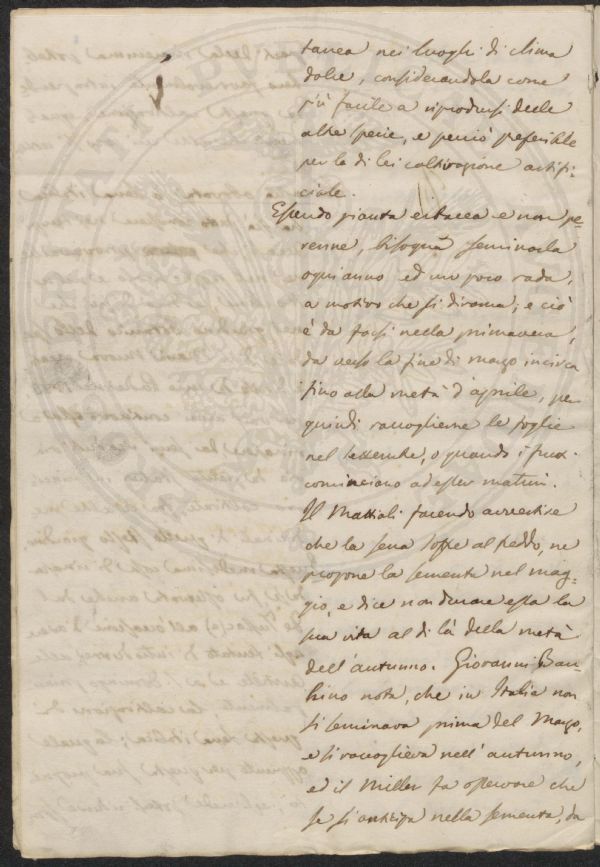 tanea nei luoghi di clima
dolce, considerandola come
più facile a riprodursi delle
altre specie, e perciò preferibile
per la di lei coltivazione artifi-
ciale.
Essendo pianta erbacea e non pe-
renne, bisogna seminarla
ogni anno ed un poco rada,
a motivo che si dirama; e ciò
è da farsi nella primavera,
da verso la fine di marzo incirca
fino alla metà d'aprile, per
quindi raccoglierne le foglie
nel settembre, o quando i frutti
cominciano ad esser maturi.
Il Mattioli facendo avvertire
che la sena soffre al freddo, ne
propone la sementa nel mag-
gio, e dice non durare essa la
sua vita al di là della metà
dell'autunno. Giovanni Bau-
hino nota, che in Italia non
si seminava prima del Marzo,
e si raccoglieva nell'autunno,
ed il Miller fa osservare che
se si anticipa nella sementa, da